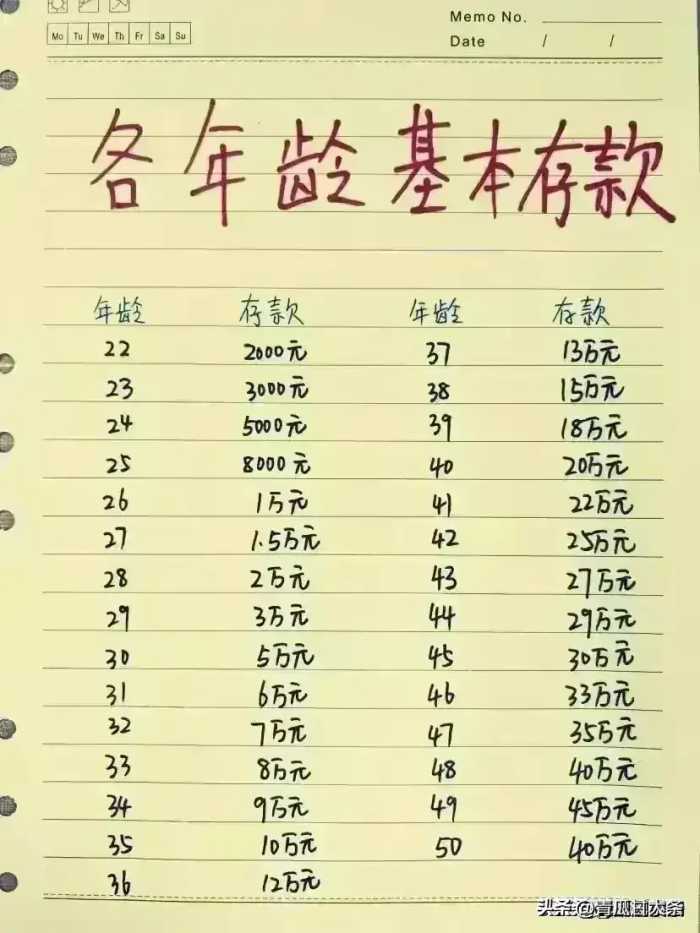 Memo No.
Mo Tu We Th Fr Sa Su
Date / /
各年龄基本存款
年龄 存款 年龄 存款
22 2000元 37 13万元
23 3000元 38 15万元
24 5000元 39 18万元
25 8000元 40 20万元
26 1万元 41 22万元
27 1.5万元 42 25万元
28 2万元 43 27万元
29 3万元 44 29万元
30 5万元 45 30万元
31 6万元 46 33万元
32 7万元 47 35万元
33 8万元 48 40万元
34 9万元 49 45万元
35 10万元 50 40万元
36 12万元
头条@青瓜